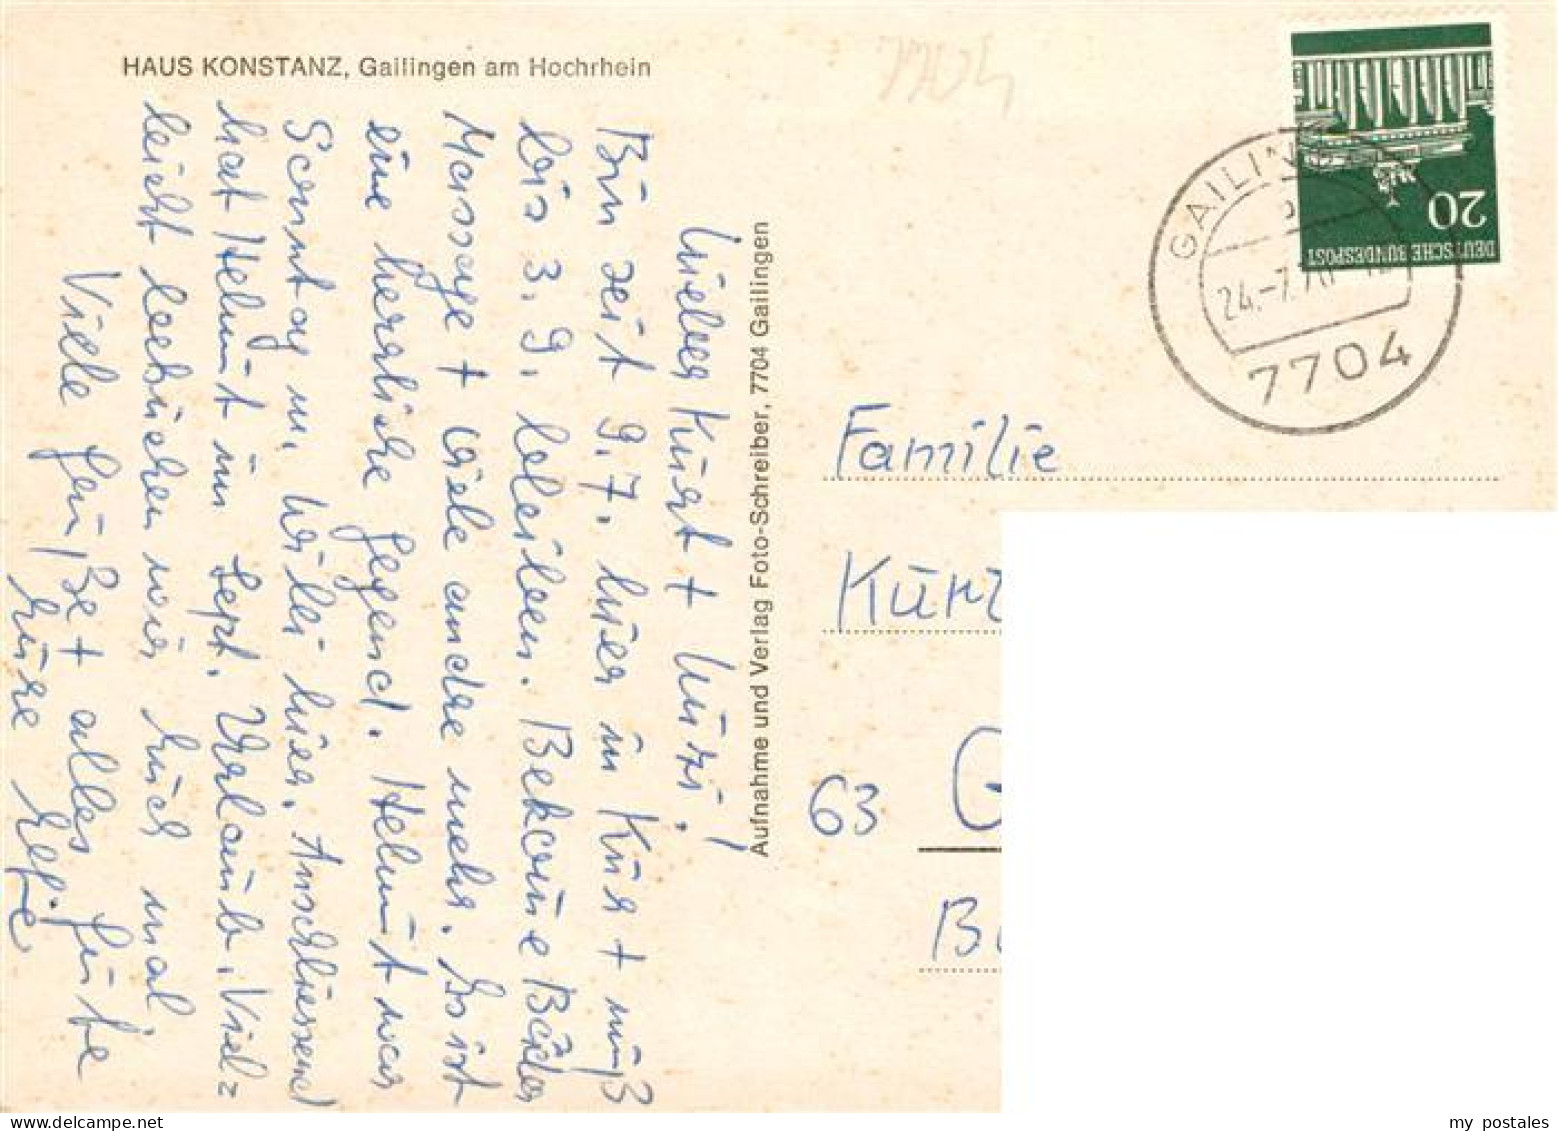 HAUS KONSTANZ, Gailingen am Hochrhein
Lieber Kurt + Uusi!
Bin seit 9.7. hier in Kur + muß
bis 3.9. bleiben. Bekomme Bäder
Massage + viele andre mehr. Es ist
eine herrliche Gegend. Helmut war
Sonntag u. Willi hier. Anschliessend
hat Helmut im Sept. Urlaub. Viel=
leicht besuchen wir Euch mal.
Viele Grüße + alles Liebe
Eure
Aufnahme und Verlag Foto-Schreiber, 7704 Gailingen
DEUTSCHE BUNDESPOST
20
GAILIN
24.-7.70
7704
Familie
Kunz
63 G
B